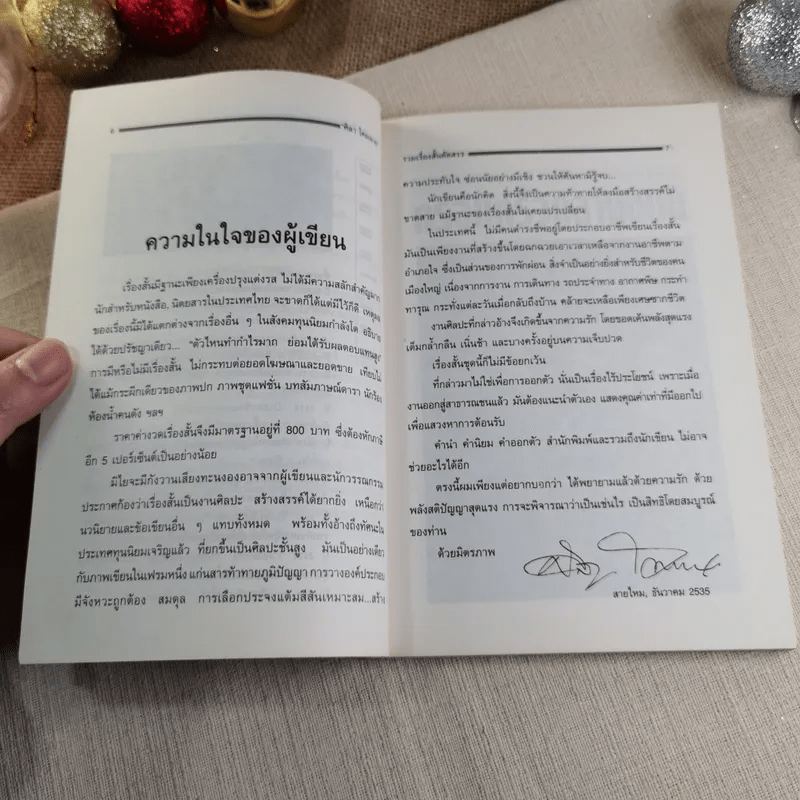 ๖
ศิลา โคมฉาย
ความในใจของผู้เขียน
เรื่องสั้นมีฐานะเพียงเครื่องปรุงแต่งรส ไม่ได้มีความสลักสำคัญมาก
นักสำหรับหนังสือ, นิตยสารในประเทศไทย จะขาดก็ได้แต่มีไว้ก็ดี เหตุผล
ของเรื่องนี้มิได้แตกต่างจากเรื่องอื่น ๆ ในสังคมทุนนิยมกำลังโต อธิบาย
ได้ด้วยปรัชญาเดียว... "ตัวไหนทำกำไรมาก ย่อมได้รับผลตอบแทนสูง"
การมีหรือไม่มีเรื่องสั้น ไม่กระทบต่อยอดโฆษณาและยอดขาย เทียบไม่
ได้แม้กระผีกเดียวของภาพปก ภาพชุดแฟชั่น บทสัมภาษณ์ดารา นักร้อง
ห้องน้ำคนดัง ฯลฯ
ราคาค่างวดเรื่องสั้นจึงมีมาตรฐานอยู่ที่ 800 บาท ซึ่งต้องหักภาษี
อีก 5 เปอร์เซ็นต์เป็นอย่างน้อย
มิใยจะมีกังวานเสียงทะนงองอาจจากผู้เขียนและนักวรรณกรรม
ประกาศก้องว่าเรื่องสั้นเป็นงานศิลปะ สร้างสรรค์ได้ยากยิ่ง เหนือกว่า
นวนิยายและข้อเขียนอื่น ๆ แทบทั้งหมด พร้อมทั้งอ้างถึงทัศนะใน
ประเทศทุนนิยมเจริญแล้ว ที่ยกขึ้นเป็นศิลปะชั้นสูง มันเป็นอย่างเดียว
กับภาพเขียนในเฟรมหนึ่ง แก่นสารท้าทายภูมิปัญญา การวางองค์ประกอบ
มีจังหวะถูกต้อง สมดุล การเลือกประจงแต้มสีสันเหมาะสม...สร้าง
รวมเรื่องสั้นคัดสรร
7
ความประทับใจ ซ่อนนัยอย่างมีเชิง ชวนให้ค้นหามิรู้จบ...
นักเขียนคือนักคิด สิ่งนี้จึงเป็นความท้าทายให้ลงมือสร้างสรรค์ไม่
ขาดสาย แม้ฐานะของเรื่องสั้นไม่เคยแปรเปลี่ยน
ในประเทศนี้ ไม่มีคนดำรงชีพอยู่โดยประกอบอาชีพเขียนเรื่องสั้น
มันเป็นเพียงงานที่สร้างขึ้นโดยฉกฉวยเอาเวลาเหลือจากงานอาชีพตาม
อำเภอใจ ซึ่งเป็นส่วนของการพักผ่อน สิ่งจำเป็นอย่างยิ่งสำหรับชีวิตของคน
เมืองใหญ่ เนื่องจากการงาน การเดินทาง รถประจำทาง อากาศพิษ กระทำ
ทารุณ กระทั่งแต่ละวันเมื่อกลับถึงบ้าน คล้ายจะเหลือเพียงเศษซากชีวิต
งานศิลปะที่กล่าวอ้างจึงเกิดขึ้นจากความรัก โดยขอดเค้นพลังสุดแรง
เต็มกล้ำกลืน เนิ่นช้า และบางครั้งอยู่บนความเจ็บปวด
เรื่องสั้นชุดนี้ก็ไม่มีข้อยกเว้น
ที่กล่าวมาไม่ใช่เพื่อการออกตัว นั่นเป็นเรื่องไร้ประโยชน์ เพราะเมื่อ
งานออกสู่สาธารณชนแล้ว มันต้องแนะนำตัวเอง แสดงคุณค่าเท่าที่มีออกไป
เพื่อแสวงหาการต้อนรับ
คำนำ คำนิยม คำออกตัว สำนักพิมพ์และรวมถึงนักเขียน ไม่อาจ
ช่วยอะไรได้อีก
ตรงนี้ผมเพียงแต่อยากบอกว่า ได้พยายามแล้วด้วยความรัก ด้วย
พลังสติปัญญาสุดแรง การจะพิจารณาว่าเป็นเช่นไร เป็นสิทธิโดยสมบูรณ์
ของท่าน
ด้วยมิตรภาพ
สายไหม, ธันวาคม 2535